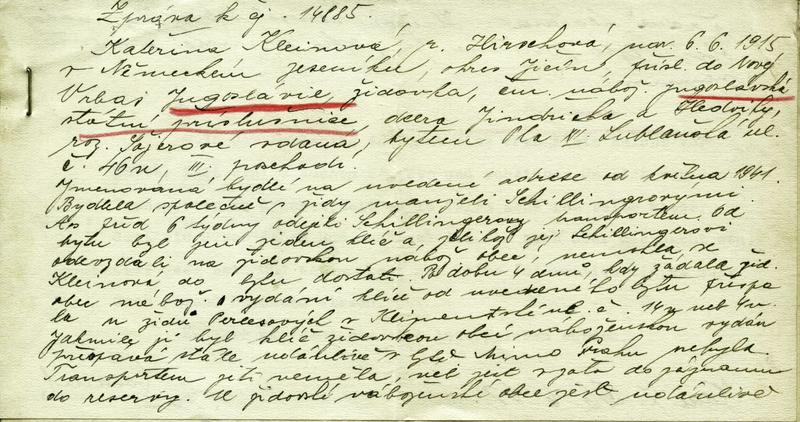 Zpráva k čj. 14885.
Kateřina Kleinová, r. Hirschová, nar. 6.6.1915
v Německém Jeseníku, okres Jičín, přísl. do Nový
Vrbas Jugoslavie, židovka, čm. nábož. jugoslávská
státní příslušnice, dcera Jindřicha a Hedviky,
roz. vdaná, bytem Pha XII. Lublaňská ul.
č. 46n, III. poschodí.
Jmenovaná bydlí na uvedené adrese od května 1941.
Bydlela společně s židy manželi Schillingrovými.
Asi před 6 týdny odešli Schillingerovy transportem. Od
bytu byl jen jeden klíč a, jelikož jej Schillingerovi
odevzdali na židovskou nábož. obec, nemohla se
Kleinová do bytu dostati. Po dobu 4 dnů, kdy žádala žid.
obec nábož. o vydání klíče od uvedeného bytu přespa
la u židů v Klimentské ul. č. 14n neb 4n.
Jakmile jí byl klíč židovskou obcí náboženskou vydán
přespává stále udánlivě v bytě. Mimo Prahu nebyla.
Transportem jíti neměla, neb jest vzata do záznamu
do reservy. U židovské náboženské obce jest udánlivě